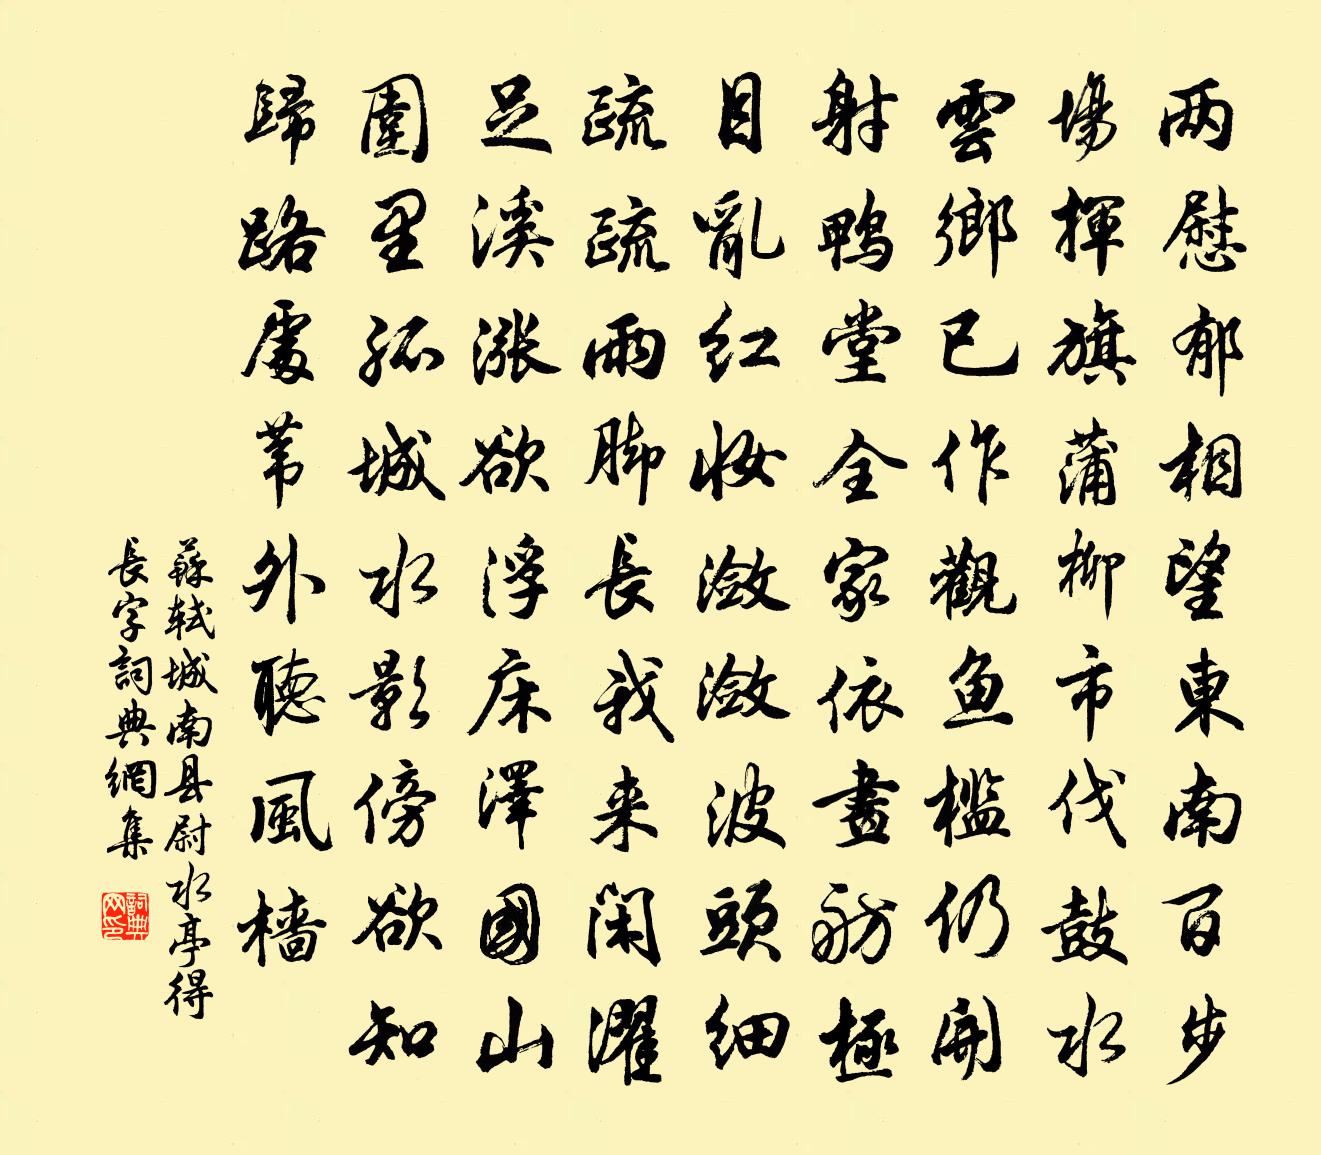 两慰郁相望東南百步
場揮旗蒲柳市伐鼓水
雲鄉已作觀魚檻仍開
射鴨堂全家依畫舫極
目亂红妝瀲瀲波頭細
疏疏雨脚長我来閑濯
足溪漲欲浮床澤國山
圍里孤城水影傍欲知
歸路處葦外聽風檣
蘇軾城南县尉水亭得
長字詞典網集
詞典
网印